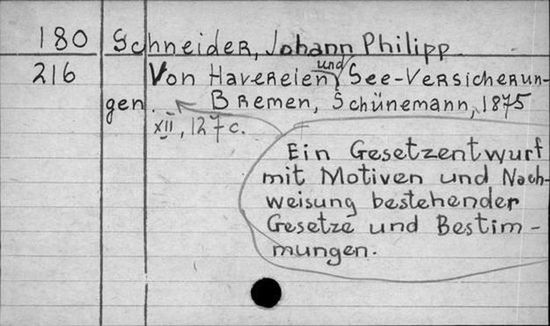 180 Schneider, Johann Philipp
216 Von Havereien und See-Versicherun-
gen. Bremen, Schünemann, 1875
XII, 127 c.
Ein Gesetzentwurf
mit Motiven und Nach-
weisung bestehender
Gesetze und Bestim-
mungen.